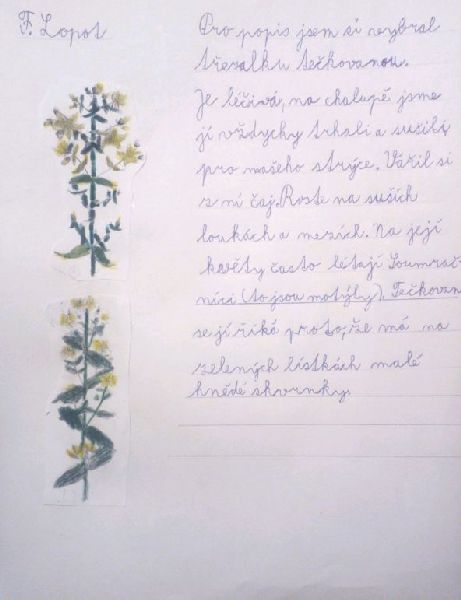 F. Lopot
Pro popis jsem si vybral
třezalku tečkovanou.
Je léčivá, na chalupě jsme
jí vždycky trhali a sušili
pro našeho strýce. Vařil si
z ní čaj. Roste na suších
loukách a mezích. Na její
květy často létají Soumrač-
níci (to jsou motýly). Tečkovan
se jí říká proto, že má na
zelených lístkách malé
hnědé skvrnky.